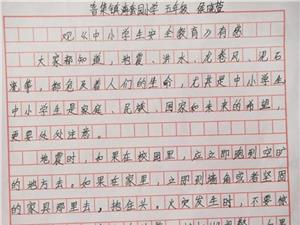 观《中小学生安全教育》有感
大家都知道，地震、洪水、龙卷风、泥石
流等，都危及着人们的生命，尤其是中小学生
中小学生是家庭、民族、国家和未来的希望，
更要处处注意。
地震时，如果在校园里，应立即跑到空旷
的地方去。如果在家里，立即到墙角或者坚固
的家具那里去，抱住头。火灾发生时，不要惊